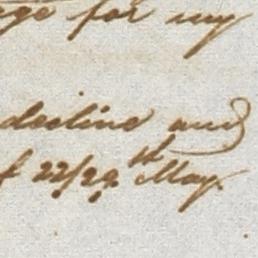 ge for my
decline and
f 22/29th May.